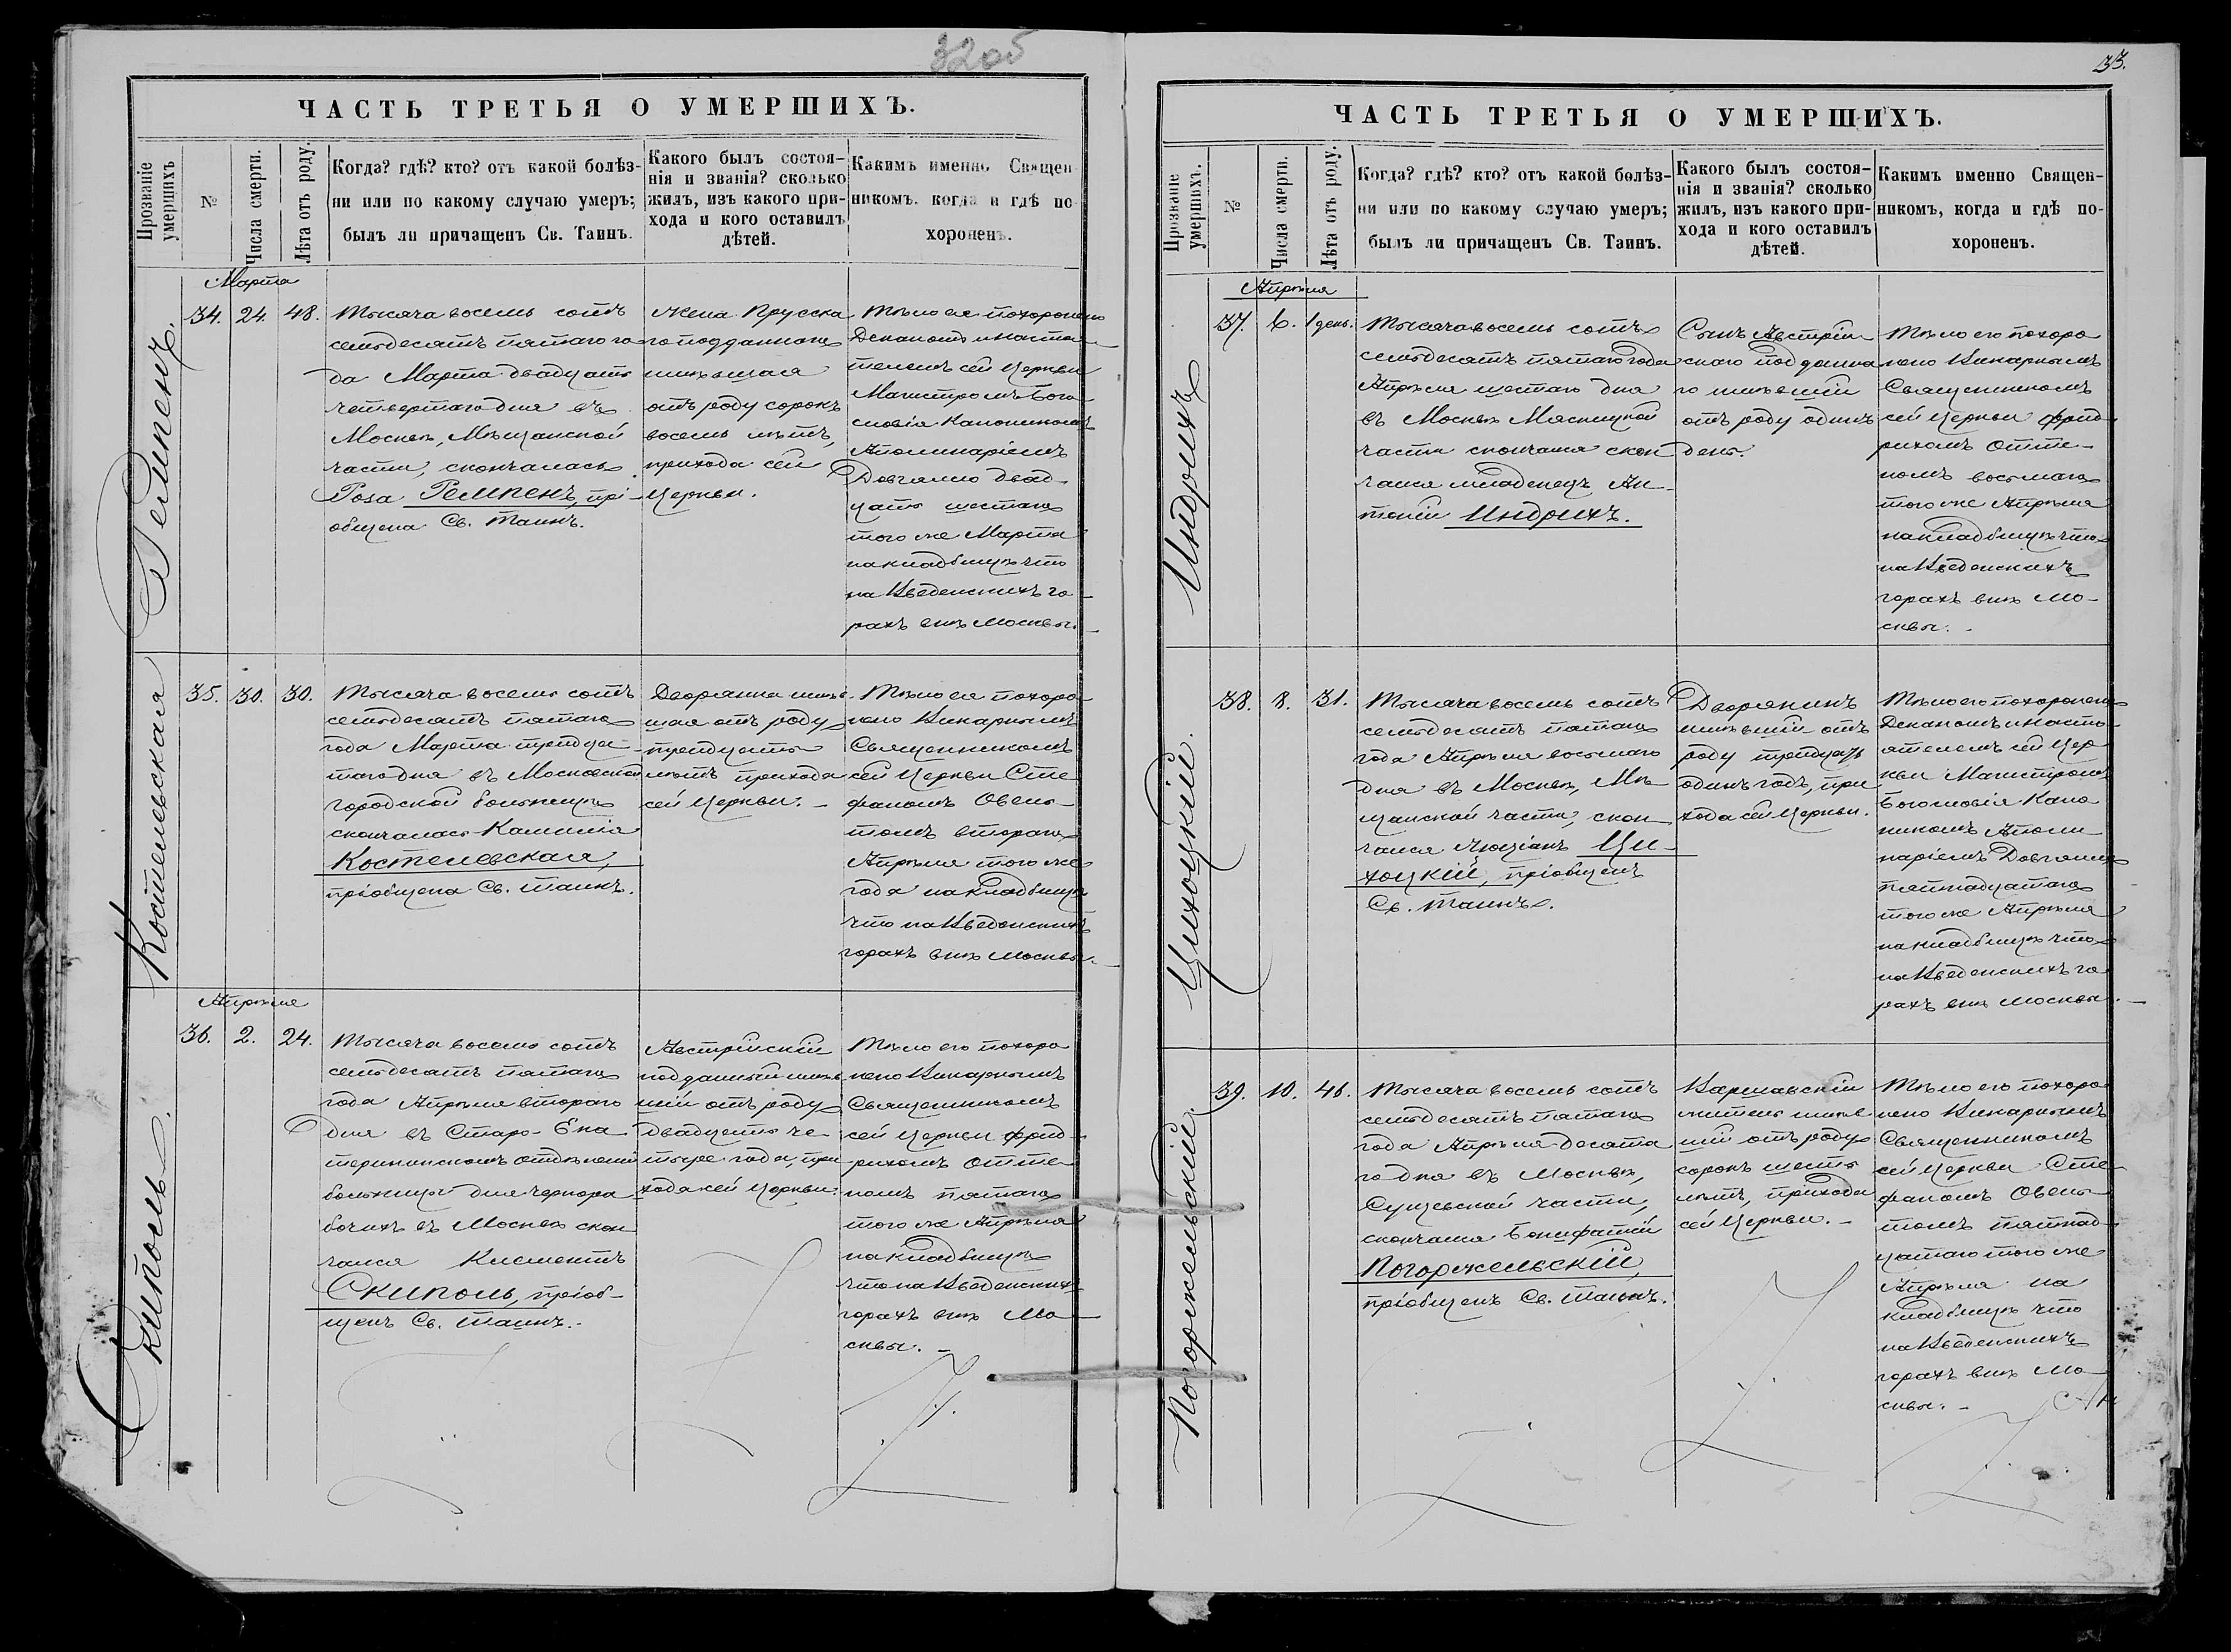 32об
ЧАСТЬ ТРЕТЬЯ О УМЕРШИХЪ.
Прозваніе умершихъ
№
Числа смерти.
Лѣта отъ роду.
Когда? гдѣ? кто? отъ какой болѣз-
ни или по какому случаю умеръ;
былъ ли причащенъ Св. Таинъ.
Какого былъ состоя-
нія и званія? сколько
жилъ, изъ какого при-
хода и кого оставилъ
дѣтей.
Какимъ именно Священ
никомъ. когда и гдѣ по
хороненъ.
Марта
Ремпенъ.
34.
24.
48.
Тысяча восемь сотъ
семьдесятъ пятаго го
да Марта двадцать
четвертаго дня въ
Москвѣ, Мѣщанской
части, скончалась
Роза Ремпенъ, прі-
общена Св. Таинъ.
Жена Прусска
го подданнаго
жившая
отъ роду сорокъ
восемь лѣтъ,
прихода сей
Церкви.
Тѣло ея похоронено
Деканомъ и насто
телемъ сей Церкви
Магистромъ Бого-
словія Каноникомъ
Аполинаріемъ
Довгялло двад-
цать шестаго
того же Марта
на кладбищѣ что
на Введенскихъ го-
рахъ внѣ Москвы.
Костелевская
35.
30.
30.
Тысяча восемь сотъ
семьдесятъ пятаго
года Марта тридца-
таго дня въ Московской
городской больницѣ
скончалась Камилія
Костелевская,
пріобщена Св. Таинъ.
Дворянка жив-
шая отъ роду
тридцать
лѣтъ прихода
сей Церкви. -
Тѣло ея похоро-
нено Викарнымъ
Священникомъ
сей Церкви Сте
фаномъ Овель-
томъ втораго
Апрѣля того же
года на кладбищѣ
что на Введенскихъ
горахъ внѣ Москвы.
Апрѣля
Скиполь.
36.
2.
24.
Тысяча восемь сотъ
семьдесятъ пятаго
года Апрѣля втораго
дня въ Старо-Ека
терининскомъ отдѣленіи
больницы для чернора
бочихъ въ Москвѣ скон
чался Климентъ
Скиполь, пріоб-
щенъ Св. Таинъ.-
Австрійскій
подданный жив
шій отъ роду
двадцать че-
тыре года, при
хода сей Церкви.
Тѣло его похоро
нено Викарнымъ
Священникомъ
сей Церкви Фрид-
рихомъ Отте-
номъ пятаго
того же Апрѣля
на кладбищѣ
что на Введенскихъ
горахъ внѣ Мо-
сквы. -
33.
ЧАСТЬ ТРЕТЬЯ О УМЕРШИХЪ.
Прозваніе умершихъ.
№
Числа смерти.
Лѣта отъ роду.
Когда? гдѣ? кто? отъ какой болѣз-
ни или по какому случаю умеръ;
былъ ли причащенъ Св. Таинъ.
Какого былъ состоя-
нія и званія? сколько
жилъ, изъ какого при-
хода и кого оставилъ
дѣтей.
Какимъ именно Священ-
никомъ, когда и гдѣ по-
хороненъ.
Апрѣля
Индрихъ
37.
6.
1 день.
Тысяча восемь сотъ
семьдесятъ пятаго года
Апрѣля шестаго дня
въ Москвѣ Мясницкой
части скончался скон
чался младенецъ Ан-
тоній Индрихъ.
Сынъ Австрій
скаго поддонна
го жившій
отъ роду одинъ
день.
Тѣло его похоро
нено Викарнымъ
Священникомъ
сей Церкви Фрид-
рихомъ Отте-
номъ восьмаго
того же Апрѣля
на кладбищѣ что
на Введенскихъ
горахъ внѣ Мо-
сквы. -
Цихоцкій.
38.
8.
31.
Тысяча восемь сотъ
семьдесятъ пятаго
года Апрѣля восьмаго
дня въ Москвѣ, Мѣ-
щанской части, скон
чался Люціанъ Ци-
хоцкій, пріобщенъ
Св. Таинъ.
Дворянинъ
жившій отъ
роду тридцать
одинъ годъ, при
хода сей Церкви.
Тѣло его похоронено
Деканомъ и насто-
ятелемъ сей Цер
кви Магистромъ
Богословія Кано
никомъ Аполи-
наріемъ Довгялло
пятнадцатаго
того же Апрѣля
на кладбищѣ что
на Введенскихъ го
рахъ внѣ Москвы. -
Погоржельскій
39.
10.
46.
Тысяча восемь сотъ
семьдесятъ пятаго
года Апрѣля десята
го дня въ Москвѣ,
Сущевской части,
скончался Бонифатій
Погоржельскій,
пріобщенъ Св. Таинъ.
Варшавскій
житель жив
шій отъ роду
сорокъ шесть
лѣтъ, прихода
сей Церкви. -
Тѣло его похоро
нено Викарнымъ
Священникомъ
сей Церкви Сте-
фаномъ Овель-
томъ пятнад-
цатаго того же
Апрѣля на
кладбищѣ что
на Введенскихъ
горахъ внѣ Мо-
сквы. -